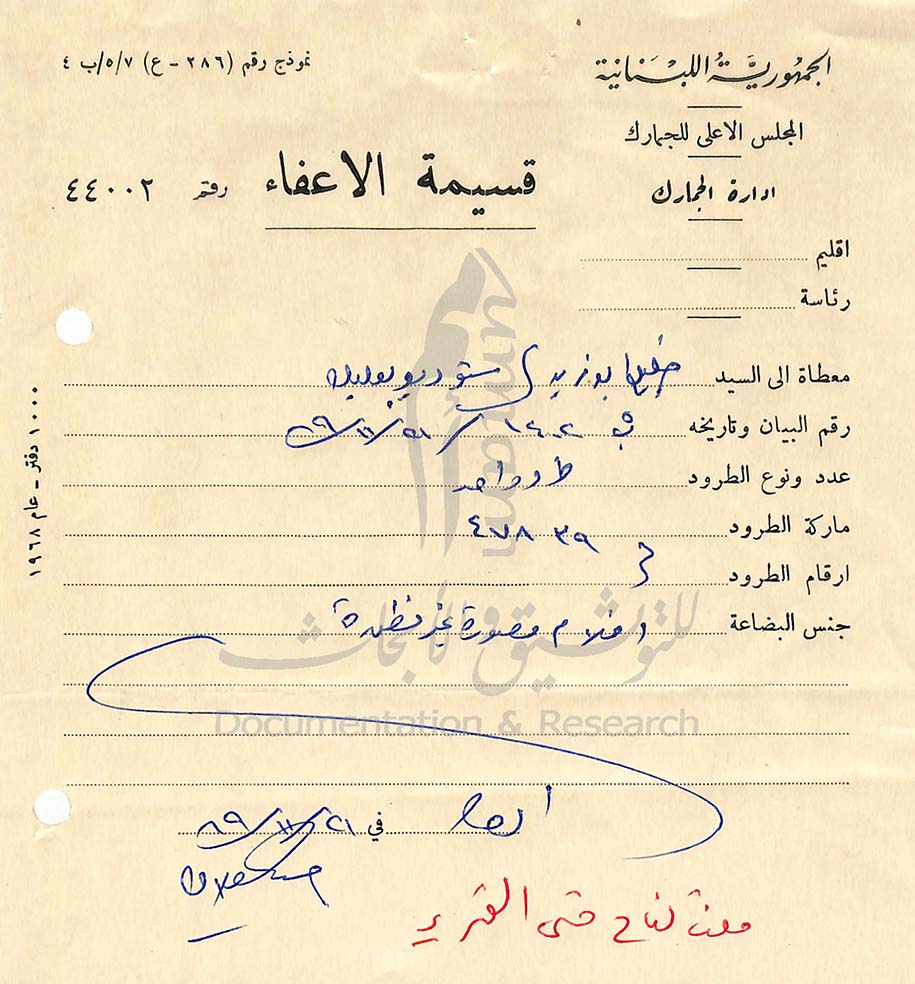 الجمهورية اللبنانية
نموذج رقم (٢٨٦ - ع) ٥/٧/ب ٤
المجلس الاعلى للجمارك
ادارة الجمارك
قسيمة الاعفاء رقم ٤٤٠٠٢
اقليم
رئاسة
معطاة الى السيد ستوديو بعلبك
رقم البيان وتاريخه ٦٩/١١/٢١
عدد ونوع الطرود طرد واحد
ماركة الطرود ٤٧٨ ٣٩
ارقام الطرود
جنس البضاعة افلام مصورة غير مظهرة
١٠٠٠ دفتر - عام ١٩٦٨
umam
للتوثيق والأبحاث
Documentation & Research
في ٦٩/١١/٢١
حتى